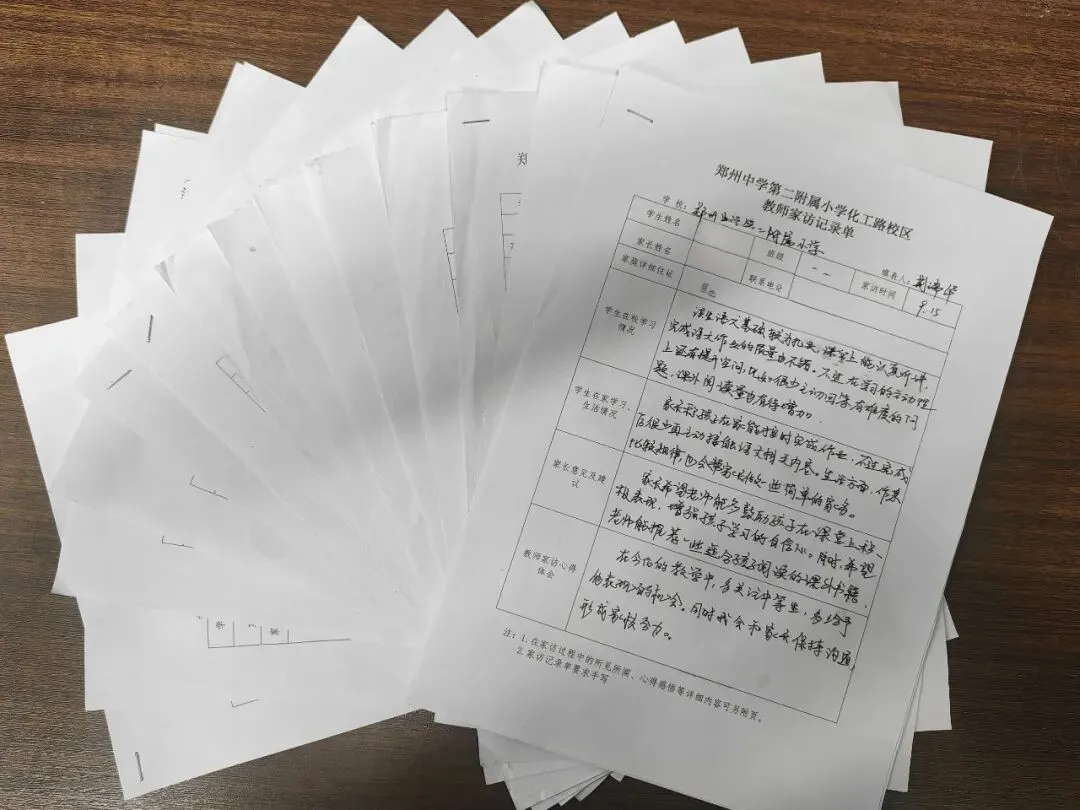 郑州中学第二附属小学化工路校区
教师家访记录单
学校：郑州中学第二附属小学
填表人：
学生姓名 班级 一一 家访时间 9.15
家长姓名 联系电话
家庭详细住址
学生在校学习情况
该生语文基础较为扎实，课堂上能认真听讲，
完成语文作业的质量也不错。不过在学习的主动性
上还有提升空间，比如很少主动回答有难度的问
题，课外阅读量也有待增加。
学生在家学习、生活情况
家长称孩子在家能按时完成作业，不过完成
后很少再主动接触语文相关内容。生活方面，作息
比较规律，也会帮家长做一些简单的家务。
家长意见及建议
家长希望老师能多鼓励孩子在课堂上积
极表现，增强孩子学习的自信心。同时，希望
老师能推荐一些适合孩子阅读的课外书籍。
教师家访心得体会
在今后的教学中，多关注中等生，多给予
他表现的机会。同时我会和家长保持沟通，
形成家校合力。
注：1.在家访过程中的所见所闻、心得感悟等详细内容可另附页。
2.家访记录单要求手写
郑
学